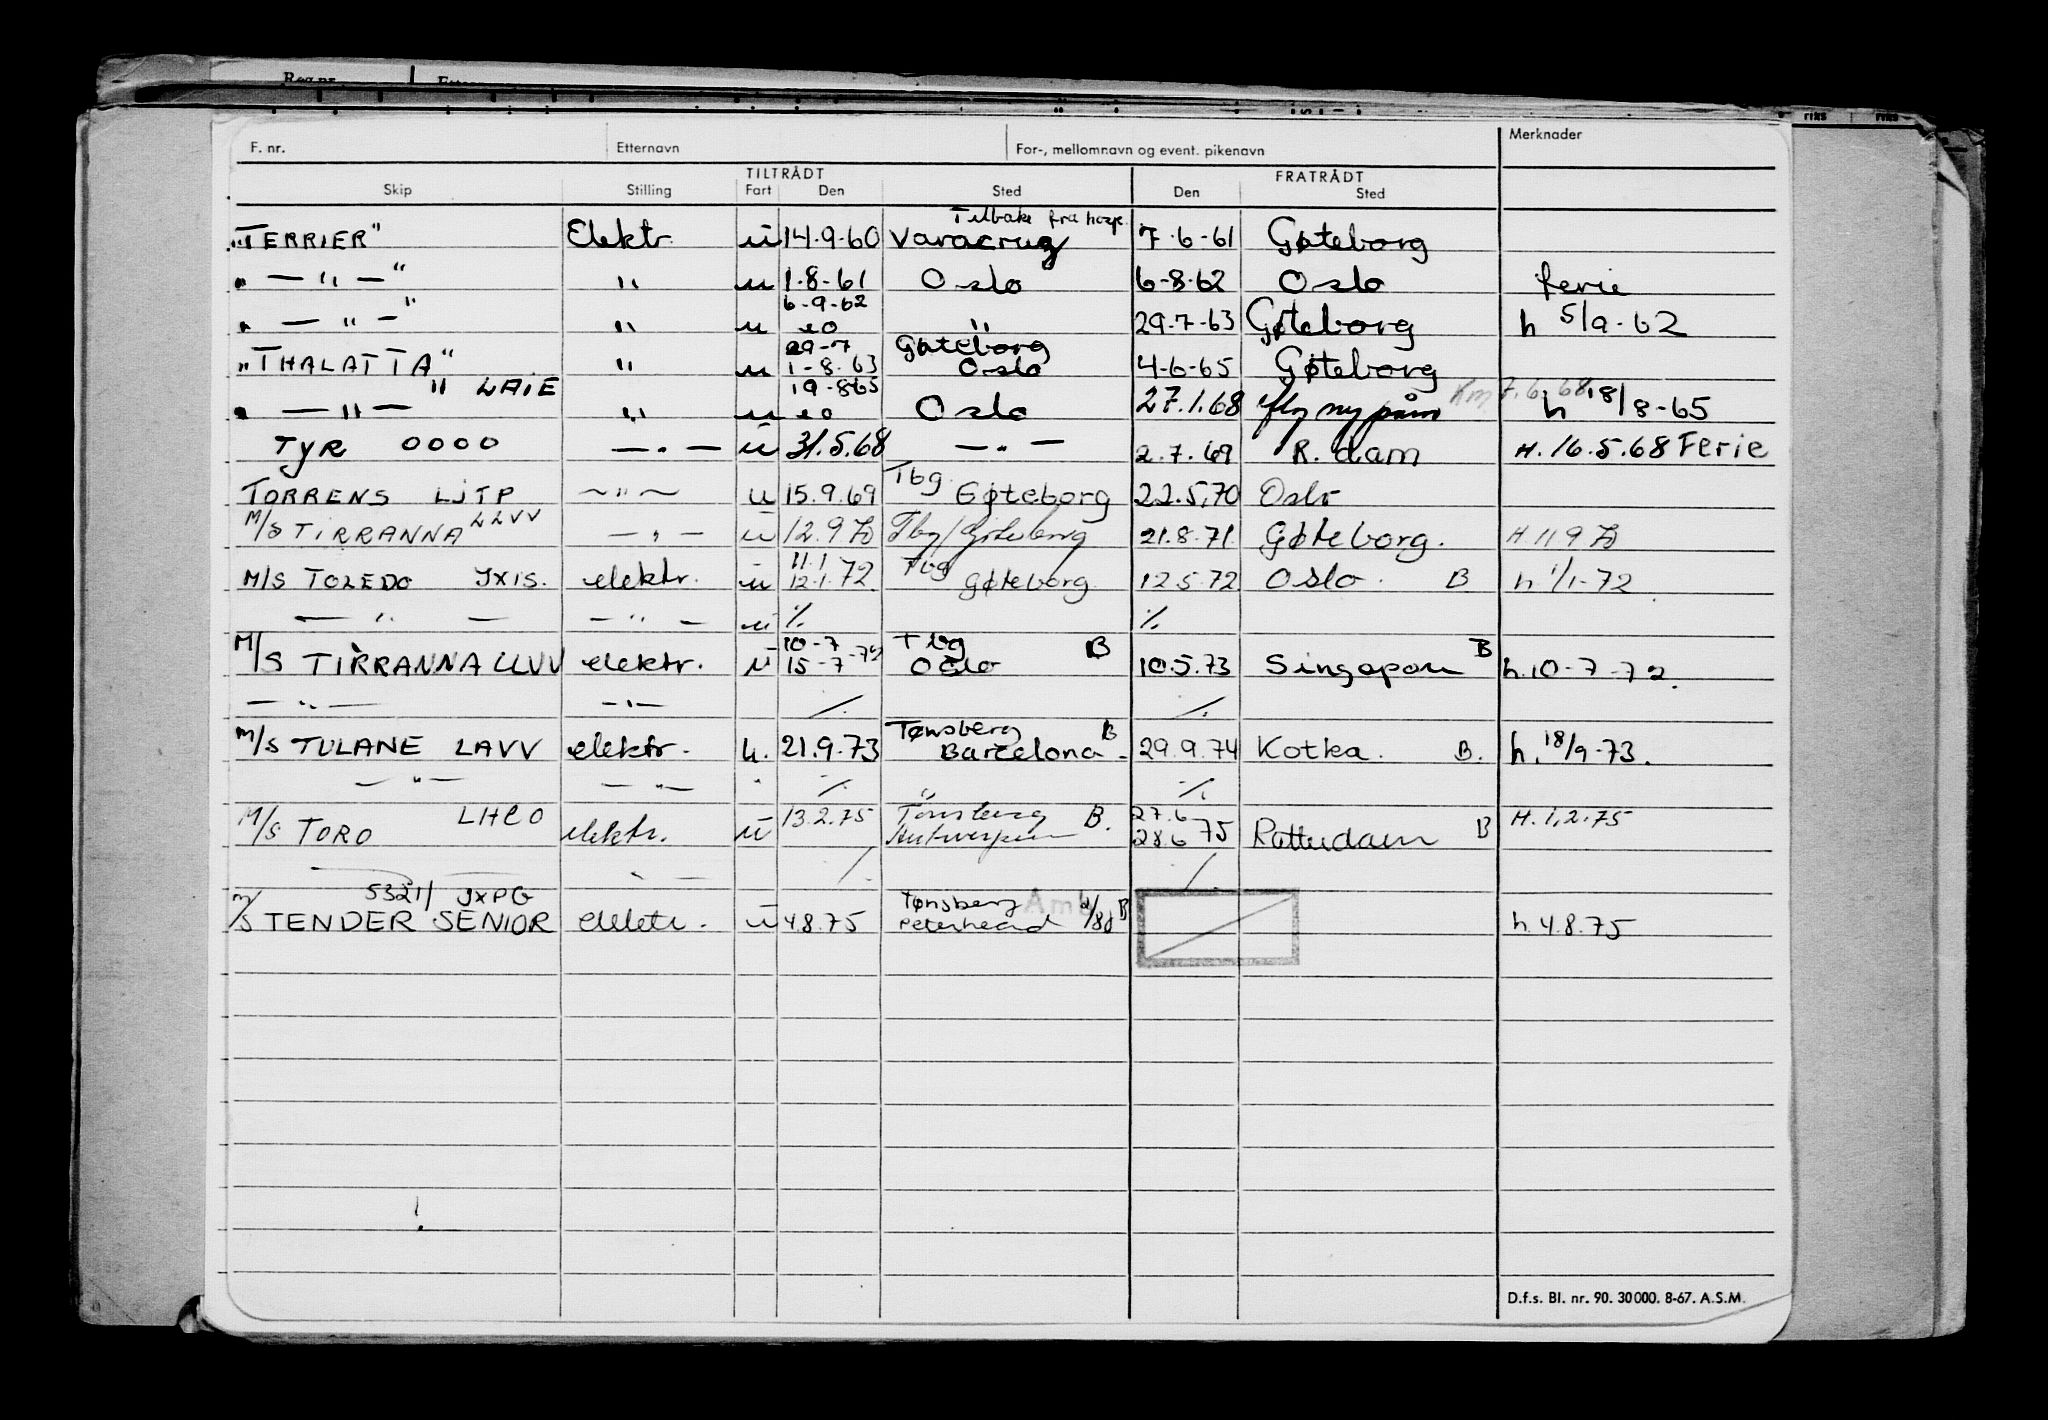 F. nr. Etternavn For-, mellomnavn og event. pikenavn Merknader
TILTRÅDT FRATRÅDT
Skip Stilling Fart Den Sted Den Sted
Tilbake fra hosp.
"TERRIER" Elektr. u 14.9-60 Varacruz 7-6-61 Gøteborg
" — " — " " u 1-8-61 Oslo 6-8-62 Oslo ferie
6-9-62
" — " — " " u eo " 29-7-63 Gøteborg h 5/9-62
29-7 Gøteborg
"THALATTA" " u 1-8-63 Oslo 4-6-65 Gøteborg
" LAIE 19-865
" — " — " u eo Oslo 27.1.68 h 18/8-65
TYR OOOO — " — u 31.5.68 — " — 2.7.69 R.dam H. 16.5.68 Ferie
Tbg
TORRENS LJTP — " — u 15.9.69 Gøteborg 22.5.70 Oslo
M/S TIRRANNA LLVV — " — u 12.9.70 Tbg/Göteborg 21.8.71. Gøteborg. H 11 9 70
11.1 Tbg
M/S TOLEDO JXIS. elektr. u 12.1.72. Gøteborg. 12.5.72 Oslo. B h 1/1-72
— " — — " — u ./. ./.
10-7 Tbg B
M/S TIRRANNA LLVV elektr. u 15-7-72 Oslo 10.5.73 Singapore B h.10-7-72.
— " — — " — ./. ./.
Tønsberg B
M/S TULANE LAVV elektr. u. 21.9.73 Barcelona - 29.9.74 Kotka. B. h. 18/9-73.
— " — — " — " ./. " ./.
LHCO 13.2.75 Tönsberg B. 27.6 H. 1.2.75
M/S TORO elektr. u Antwerpen 28.6 75 Rotterdam B
./. ./.
5321/ JXPG Tønsberg Amb
M/S TENDER SENIOR elektr. u 4.8.75 Peterhead B h. 4.8.75
D.f.s. Bl. nr. 90. 30000. 8-67. A.S.M.